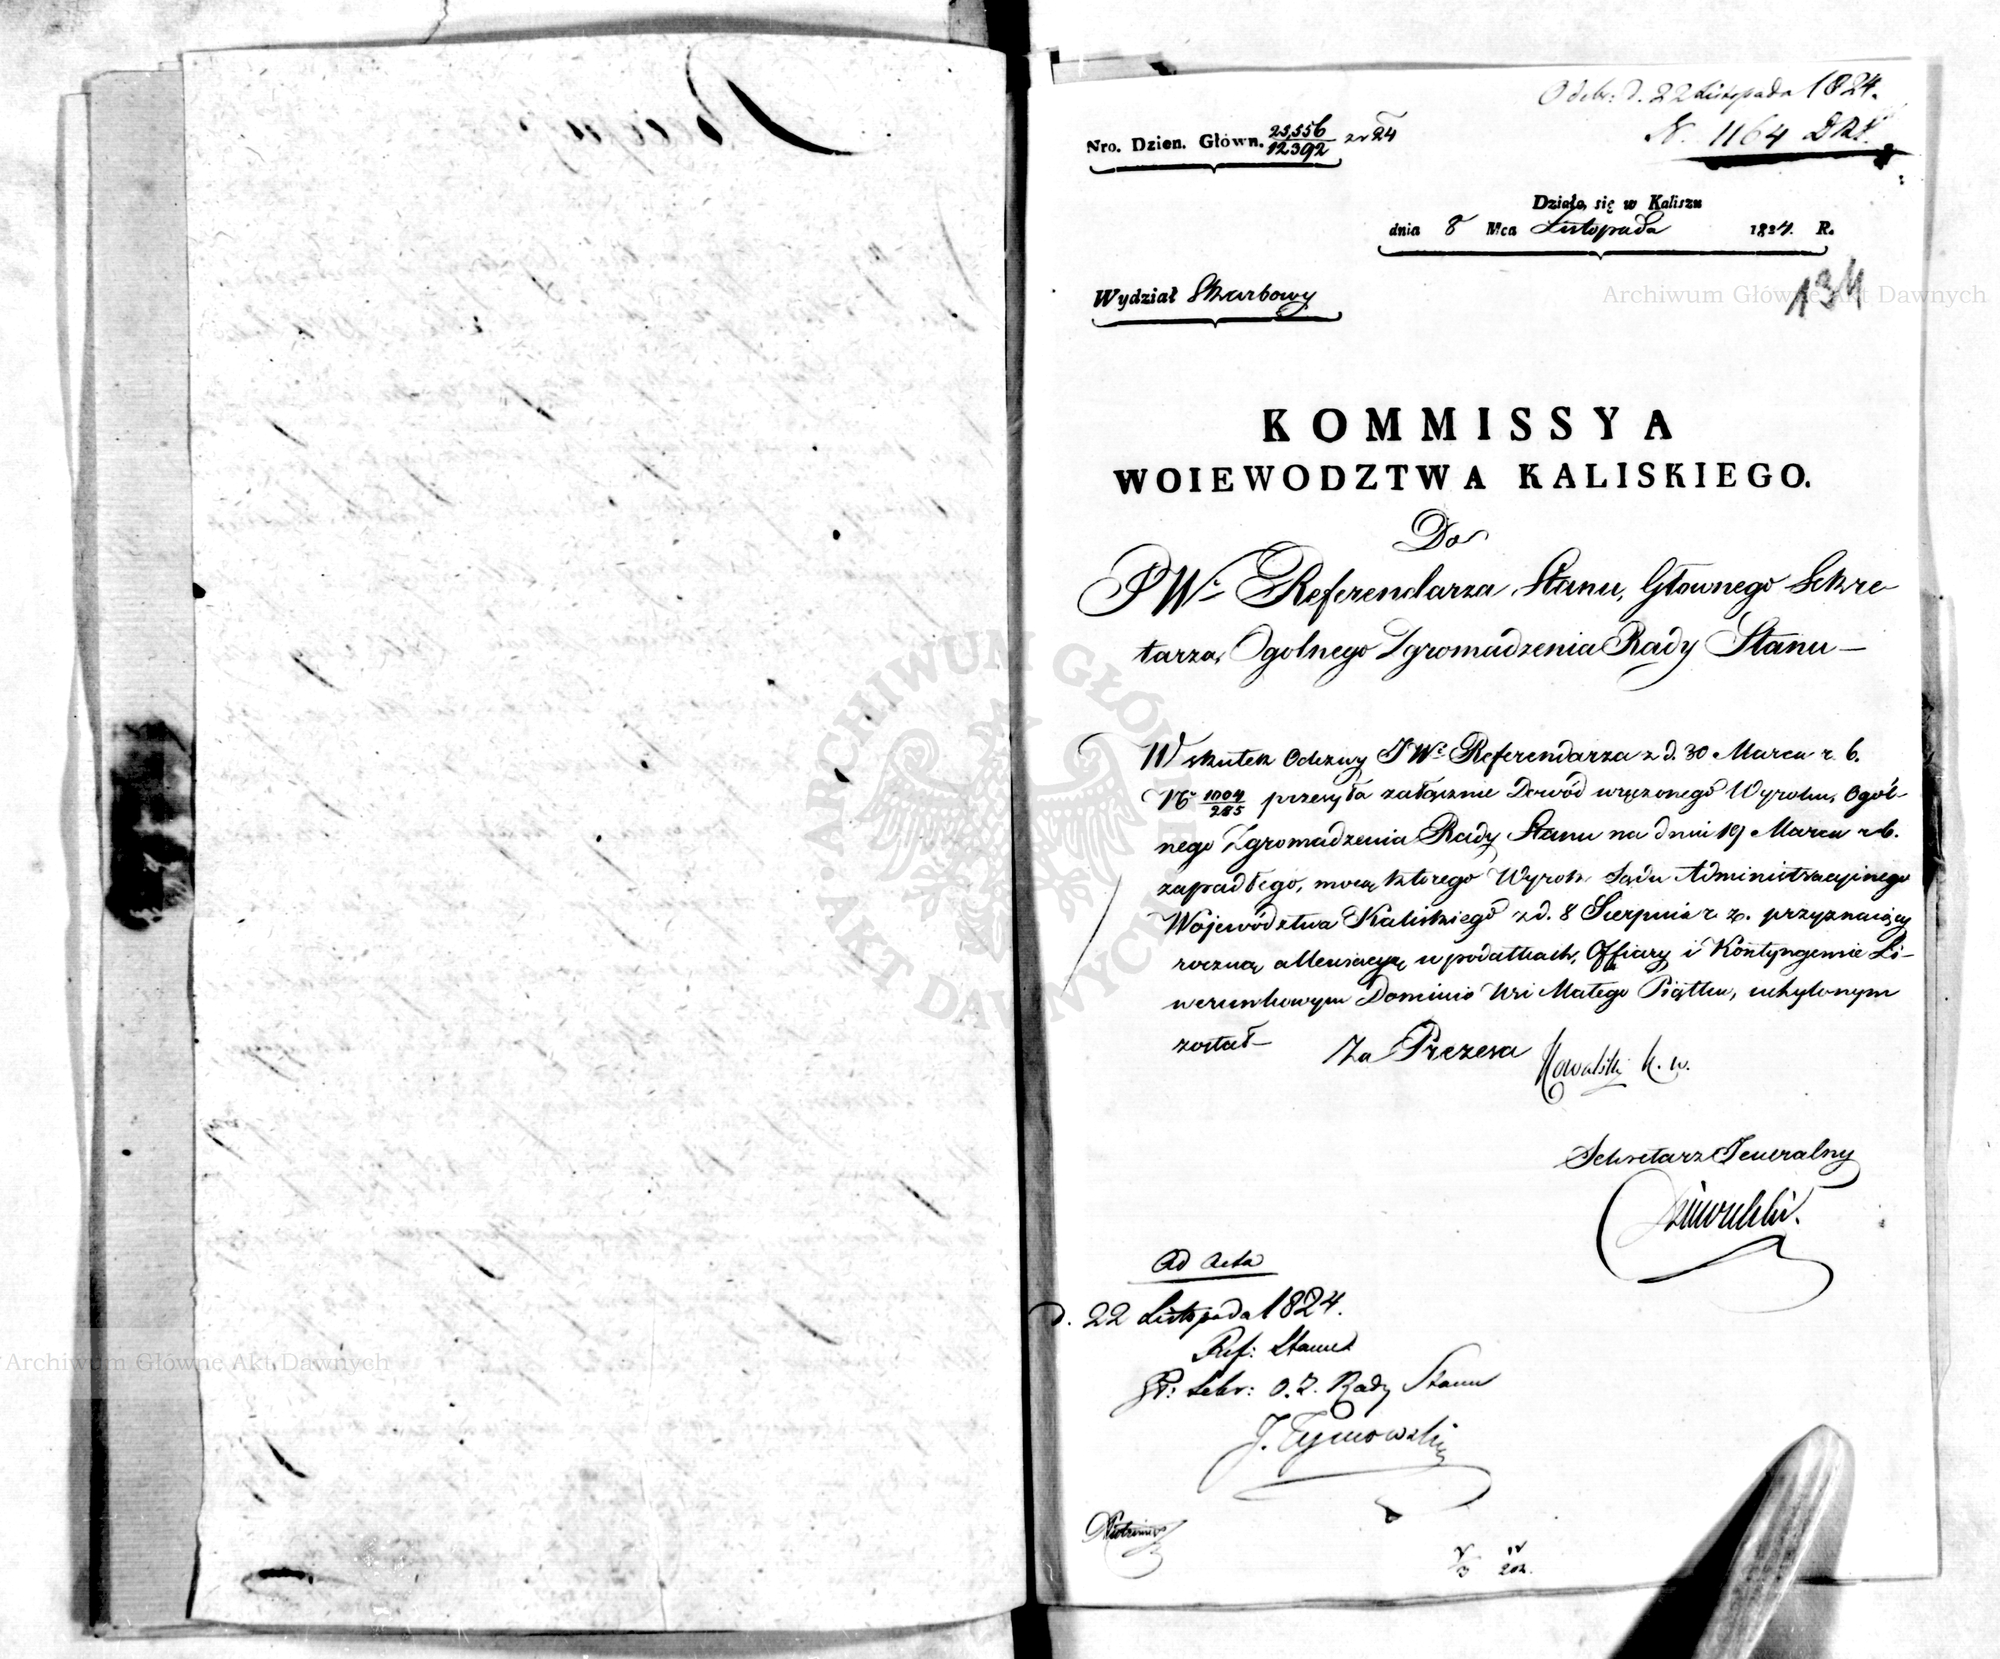 Odebr: d. 22 Listopada 1824.
N. 1164
Nro. Dzien. Główn. 23,556/12392
Działo się w Kaliszu
dnia 8 Mca Listopada 1824. R.
Wydział Skarbowy
134
Archiwum Główne Akt Dawnych
KOMMISSYA
WOIEWODZTWA KALISKIEGO.
Do
JWo Referendarza Stanu, Głownego Sekre
tarza, Ogolnego Zgromadzenia Rady Stanu—
W skutek Odezwy JWo Referendarza z d. 30 Marca r. b.
No 1004/285 przesyła załącznie Dowód wręczonego Wyroku, Ogól-
nego Zgromadzenia Rady Stanu na dniu 19 Marca r b.
zapadłego, mocą którego Wyrok Sądu Administracyinego
Województwa Kaliskiego z d. 8 Sierpnia r. z. przyznaiący
roczną allewiacyą w podatkach, Offiary i Kontyngensie Li-
werunkowym Dominio Wsi Małego Piątku, uchylonym
został—
Za Prezesa Kowalski K. W.
Sekretarz Jeneralny
Ad Acta
d. 22 Listopada 1824.
Ref: Stanu
Gł: Sekr: O. Z. Rady Stanu
J. Tymowski
Archiwum Główne Akt Dawnych
ARCHIWUM GŁÓWNE AKT DAWNYCH